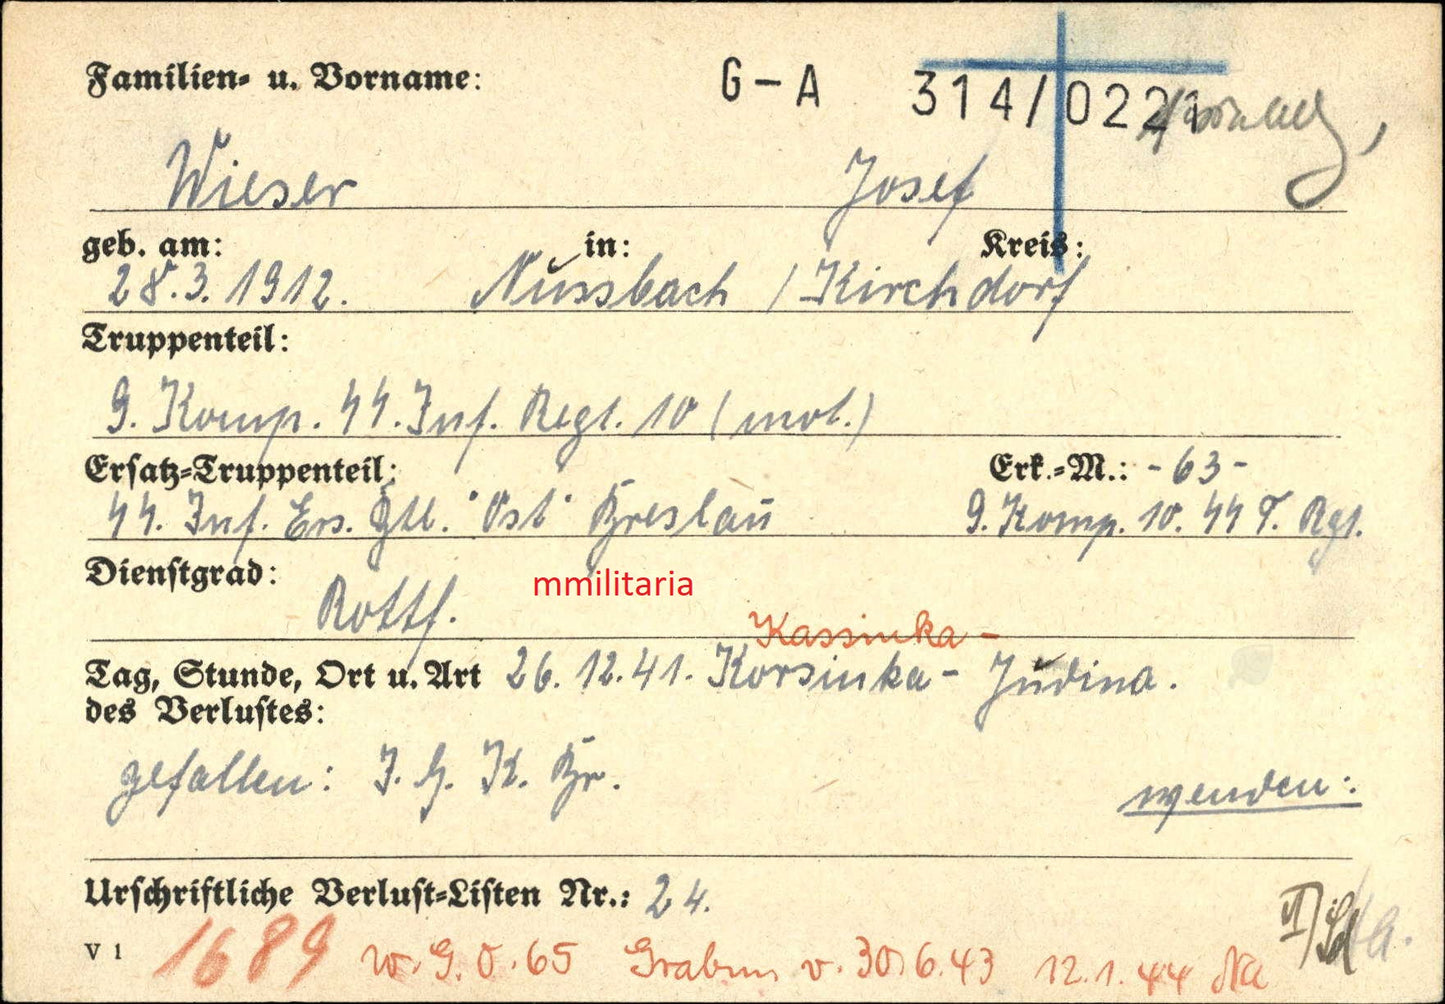 Familien= u. Vorname: G-A 314/0221
Wieser Josef
geb. am: in: Kreis:
28.3.1912. Nussbach / Kirchdorf
Truppenteil:
9. Komp. 44. Inf. Regt. 10 (mot.)
Ersatz=Truppenteil: Erk.=M.: -63-
44. Inf. Ers. Btl. "Ost" Breslau 9. Komp. 10. 44 T. Rgt.
Dienstgrad:
Rottf.
mmilitaria
Kassinka -
Tag, Stunde, Ort u. Art 26.12.41. Korsinka - Judina.
des Verlustes:
gefallen: I. G. K. Br.
wenden:
Urschriftliche Verlust=Listen Nr.: 24.
V 1 1689 w. G. O. 65 Grabm v. 30.6.43 12.1.44